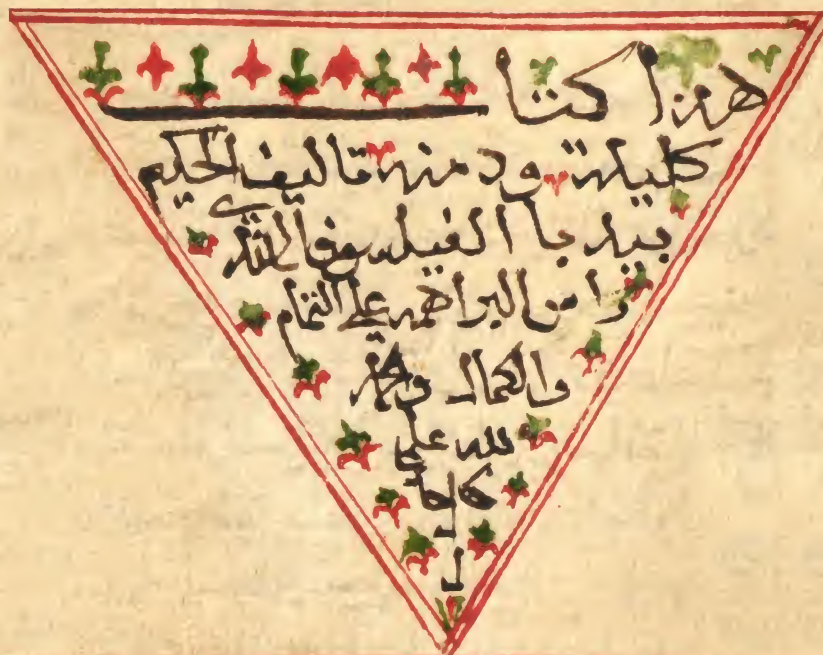 هذا كتاب
كليلة ودمنه تاليف الحكيم
بيدبا الفيلسوف الهندي
راس البراهمه علي التمام
والكمال والحمد
لله علي
كل حا
ل